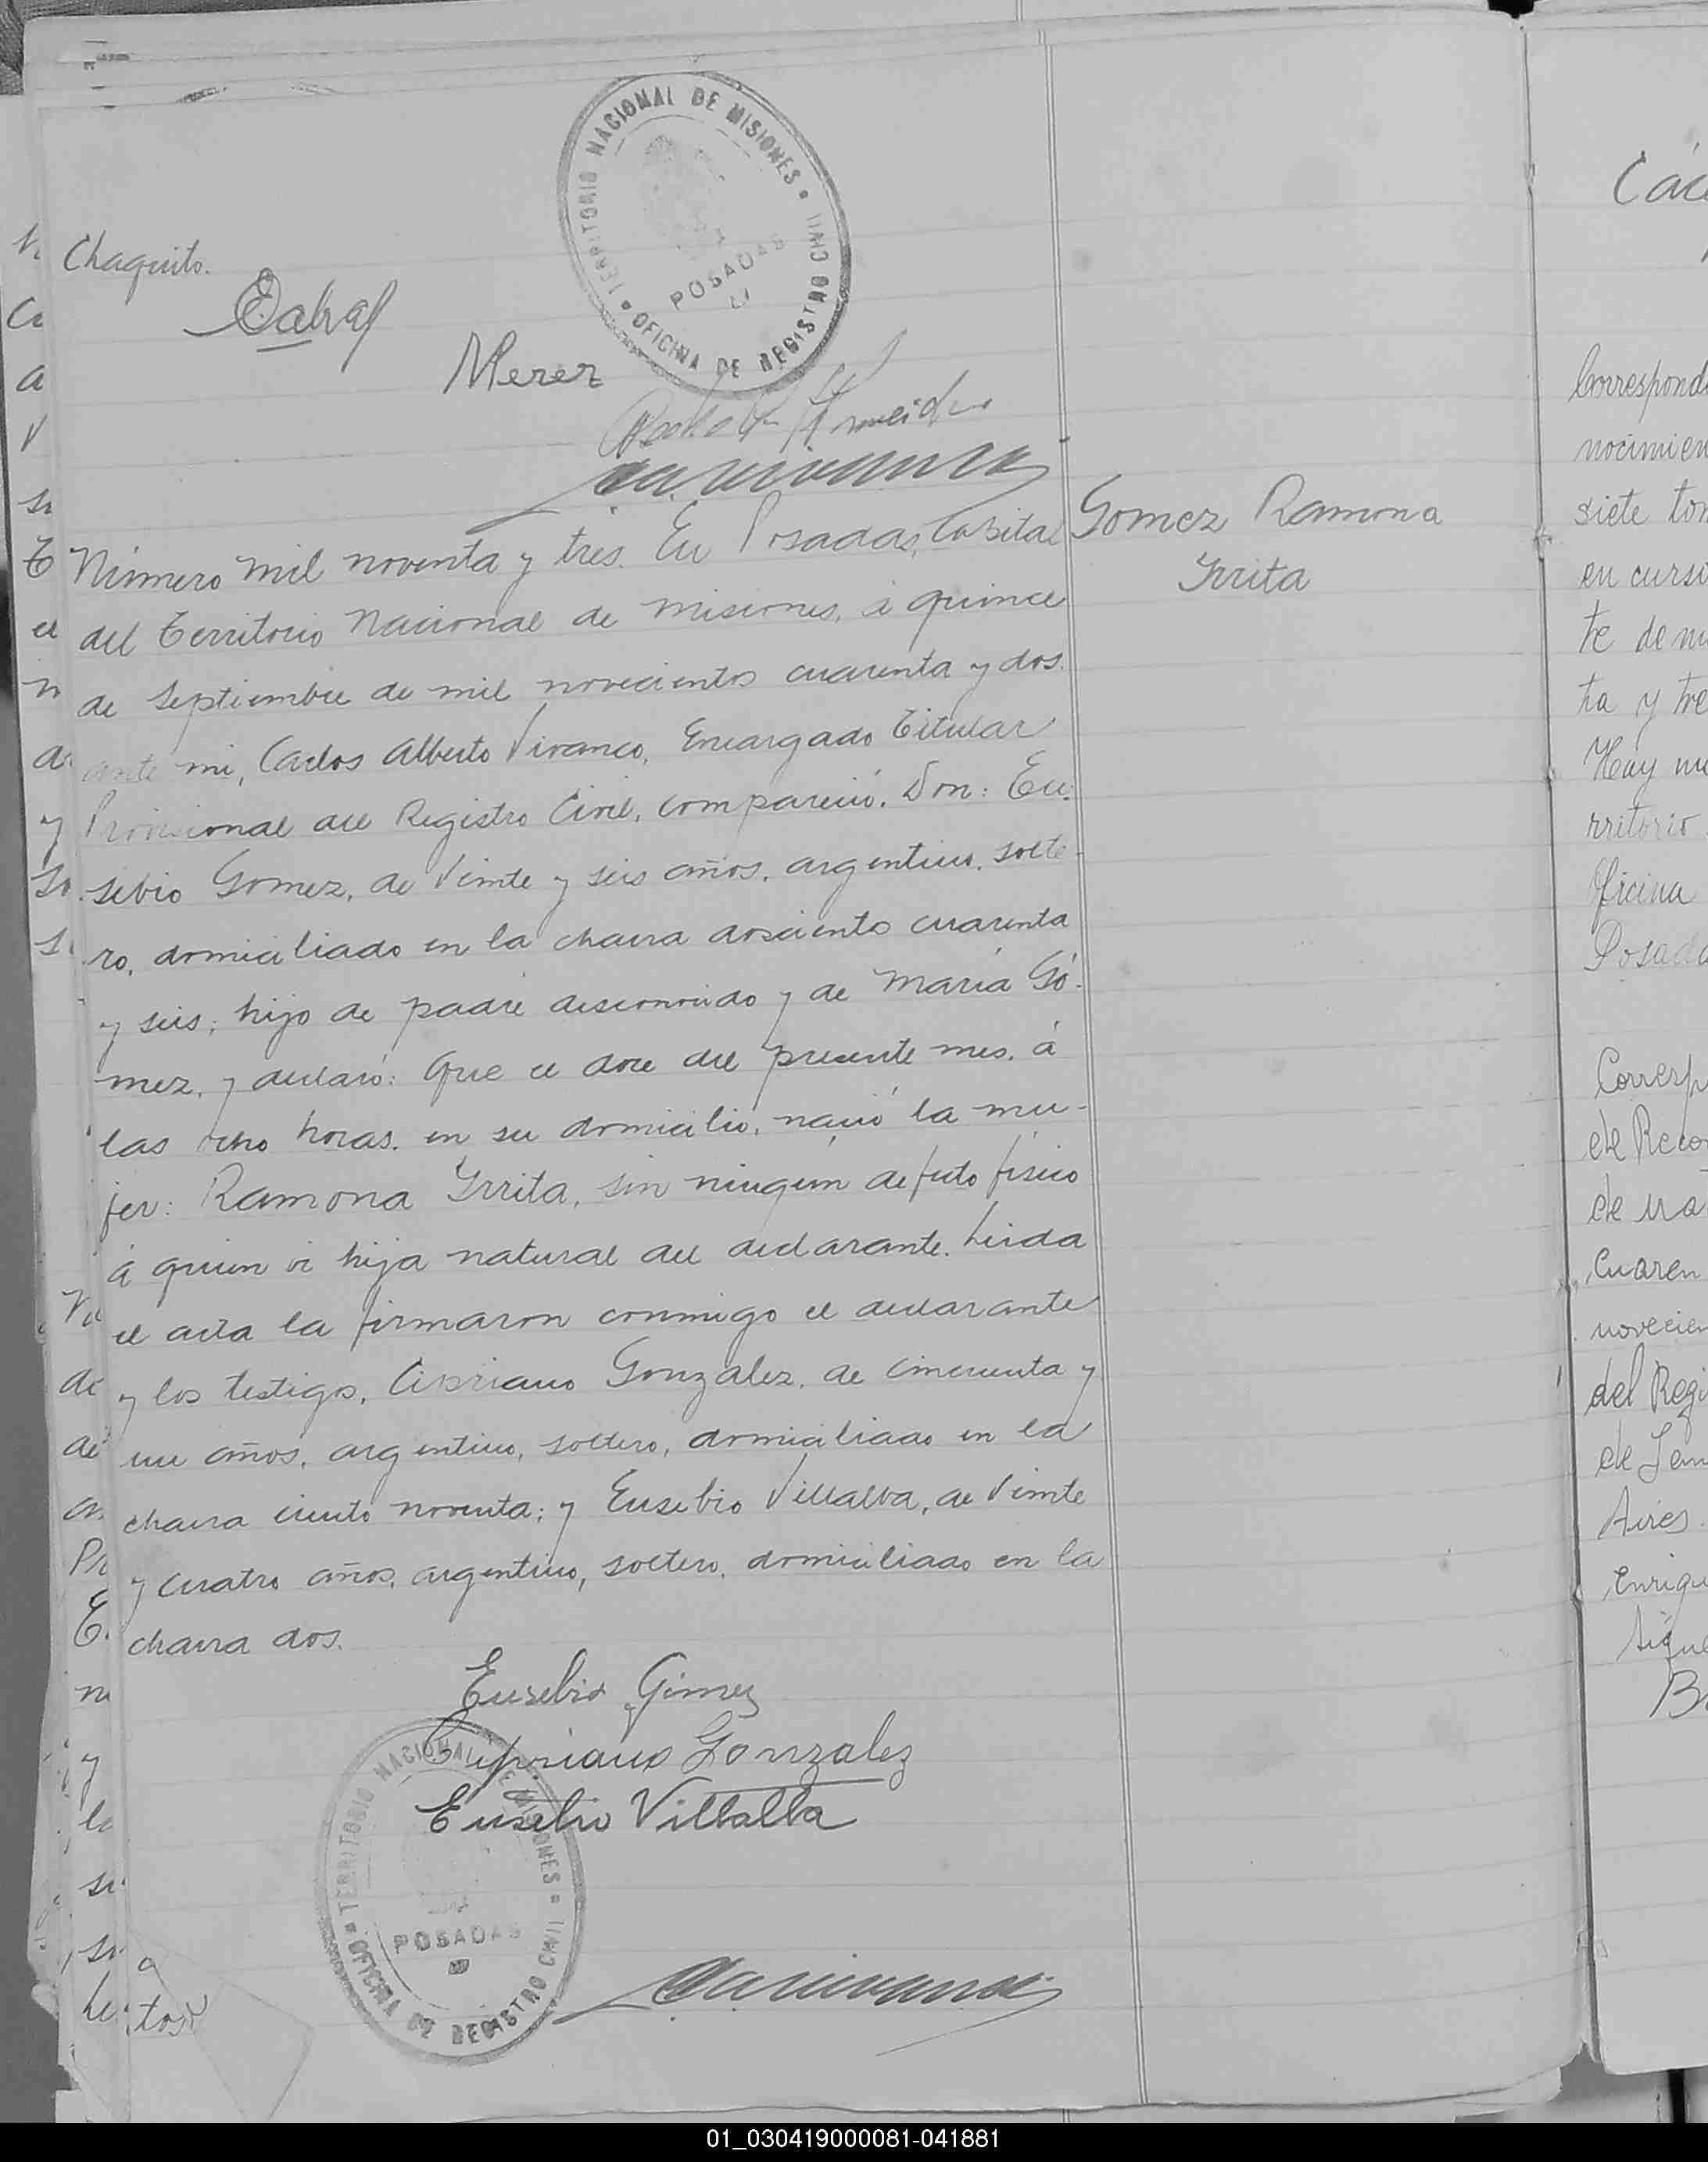 TERRITORIO NACIONAL DE MISIONES
OFICINA DE REGISTRO CIVIL
POSADAS
Chaquito.
Cabral
Merez
Gomez Ramona
Yrrita
Número mil noventa y tres. En Posadas, Capital
del Territorio Nacional de Misiones, á quince
de Septiembre de mil novecientos cuarenta y dos.
ante mi, Carlos Alberto Vivanco, Encargado Titular
Provisional del Registro Civil, compareció. Don: Eu-
sebio Gomez, de Veinte y seis años, argentino, solte-
ro, domiciliado en la chacra dosciento cuarenta
y seis; hijo de padre desconocido y de María Gó-
mez, y declaró: Que el doce del presente mes, á
las ocho horas. en su domicilio, nació la mu-
jer: Ramona Yrrita, sin ningún defecto físico
á quien vi hija natural del declarante. Leida
el acta la firmaron conmigo el declarante
y los testigos, Cipriano Gonzalez, de cincuenta y
un años, argentino, soltero, domiciliado en la
chacra ciento noventa; y Eusebio Villalba, de Veinte
y cuatro años, argentino, soltero, domiciliado en la
chacra dos.
Eusebio Gómez
Cipriano Gonzalez
Eusebio Villalba
TERRITORIO NACIONAL DE MISIONES
OFICINA DE REGISTRO CIVIL
POSADAS
tos
Correspond
nocimien
siete tom
en cursi
te de m
ta y tre
Hay un
rritorio
ficina
Posada
Corresp
de Reco
de na
Cuaren
novecien
del Regi
de
Aires.
enriqu
01_030419000081-041881